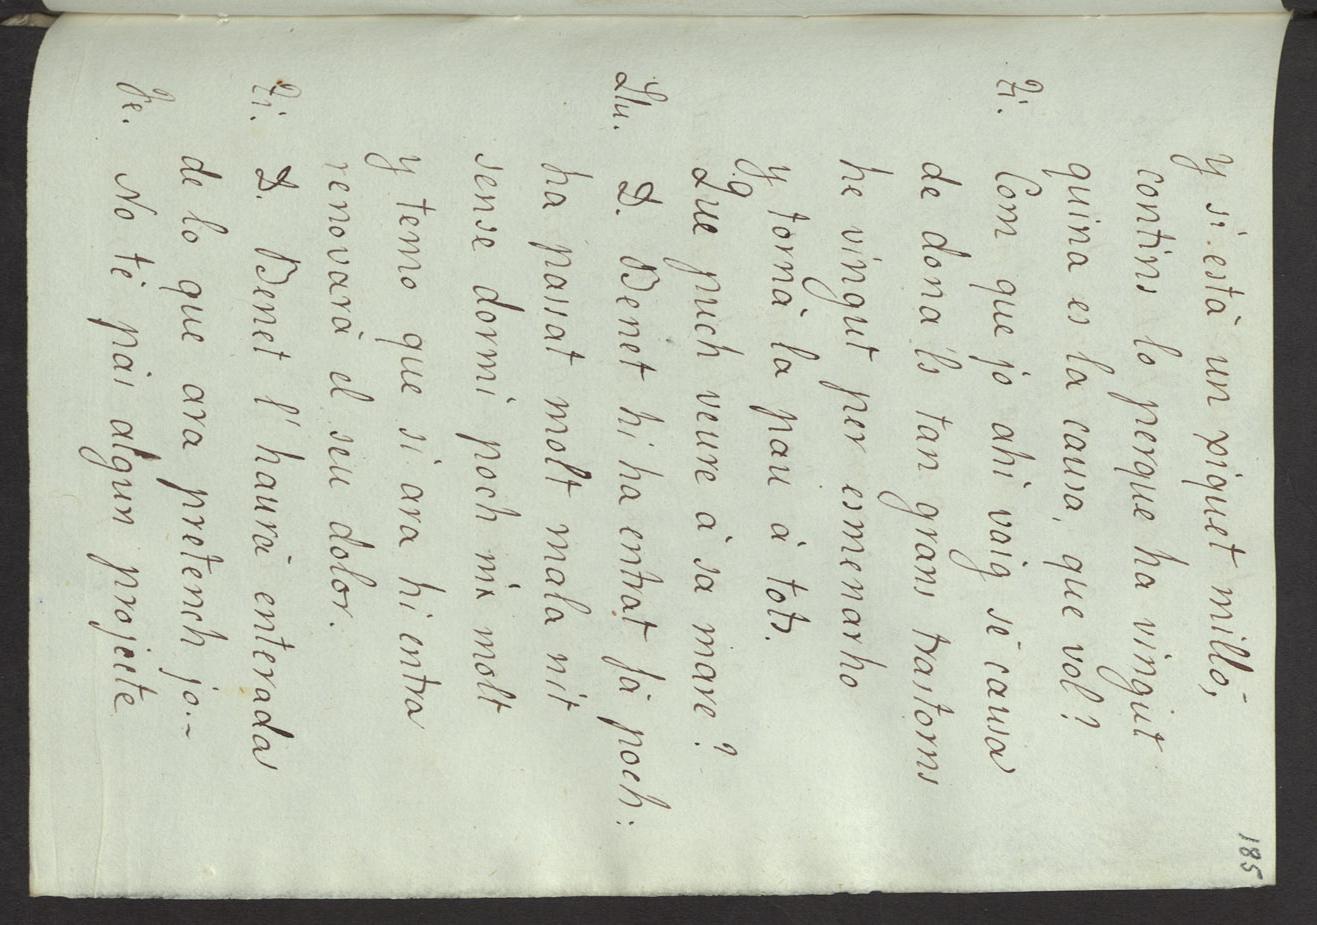 185
y si està un xiquet milló,
contins lo perque ha vingut
quina es la causa, que vol?
Fi. Com que jo ahi vaig sè causa
de dona 'ls tan grans trastorns
he vingut per esmenarho
y torná la pau á tots.
Que puch veure á sa mare?
Llu. D. Benet hi ha entrat fá poch:
ha passat molt mala nit
sense dormi poch nix molt
y temo que si ara hi entra
renovará el seu dolor.
Fi. D. Benet l' haurá enterada
de lo que ara pretench jo.~
Je. No té pas algun projecte